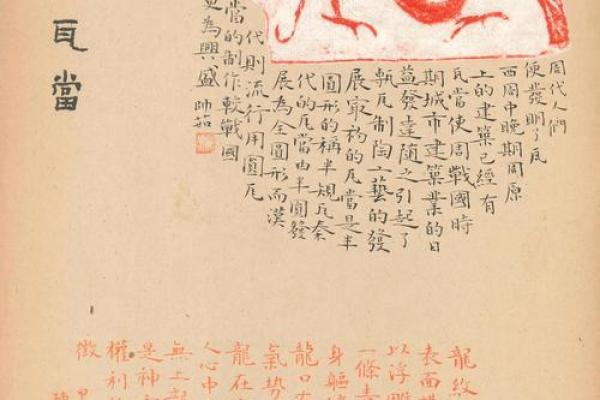 周代人們
便發明了瓦
西周中晚期周原
上的建築已經有
瓦當使周戰國時
期城市建築業的日
益發達隨之引起了
瓦制陶工藝的發
展最初的瓦當是半
圓形的稱半規瓦秦
代的瓦當由半圓發
展為全圓形而漢
代則流行用圓瓦
當的制作較戰國
更為興盛 帥茹
瓦當
龍紋
表面
以浮雕
一條
身軀
龍口
氣勢
龍在
人心中
無上
是神
權利
徵